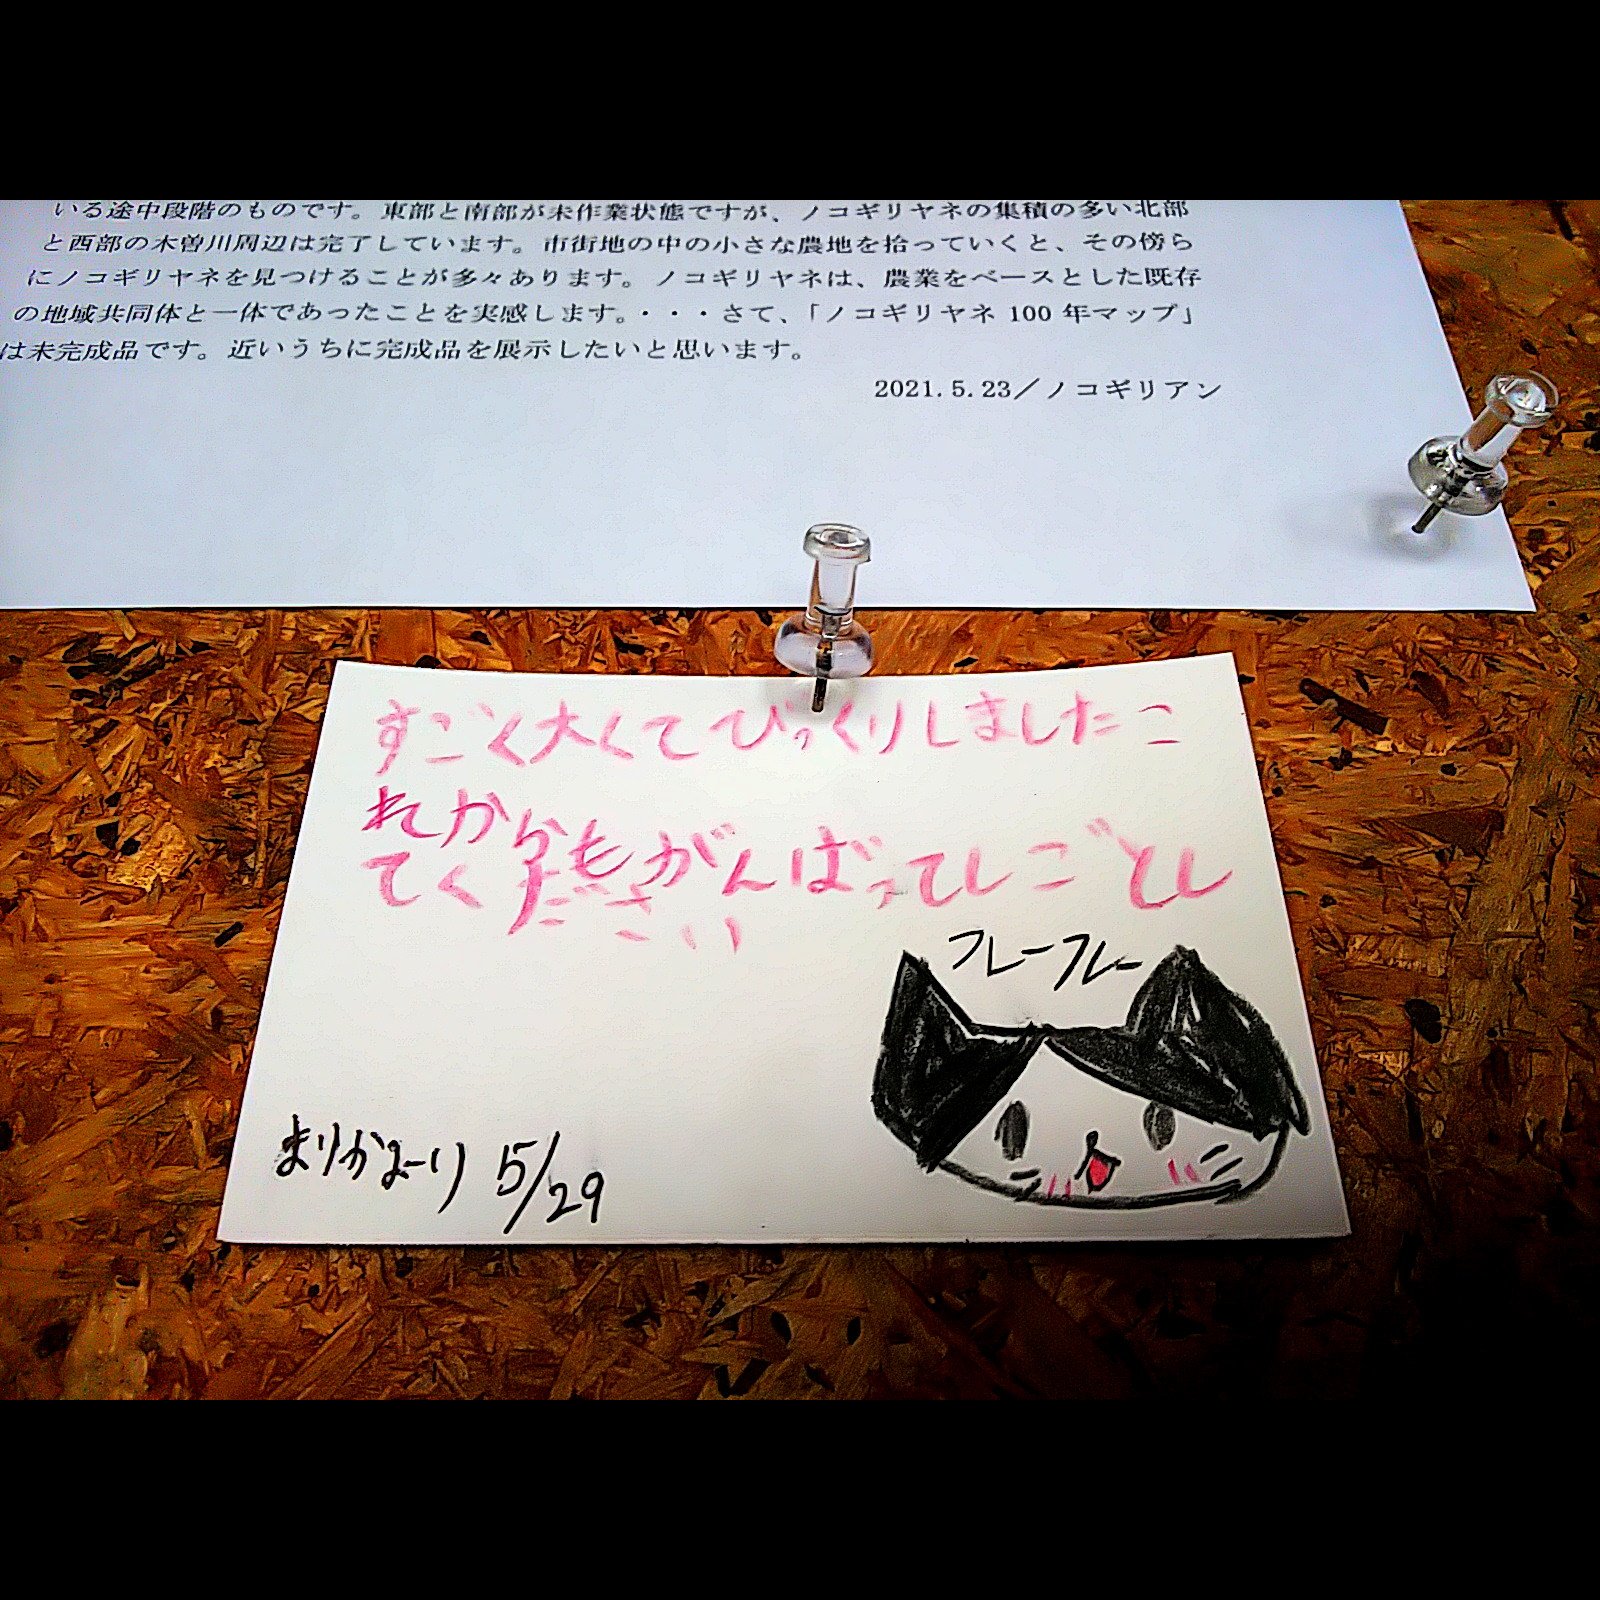 いる途中段階のものです。東部と南部が未作業状態ですが、ノコギリヤネの集積の多い北部
と西部の木曽川周辺は完了しています。市街地の中の小さな農地を拾っていくと、その傍ら
にノコギリヤネを見つけることが多々あります。ノコギリヤネは、農業をベースとした既存
の地域共同体と一体であったことを実感します。・・・さて、「ノコギリヤネ 100 年マップ」
は未完成品です。近いうちに完成品を展示したいと思います。
2021.5.23/ノコギリアン
すごく大くてびっくりしましたこ
れからもがんばってしごとし
てください
フレーフレー
5/29